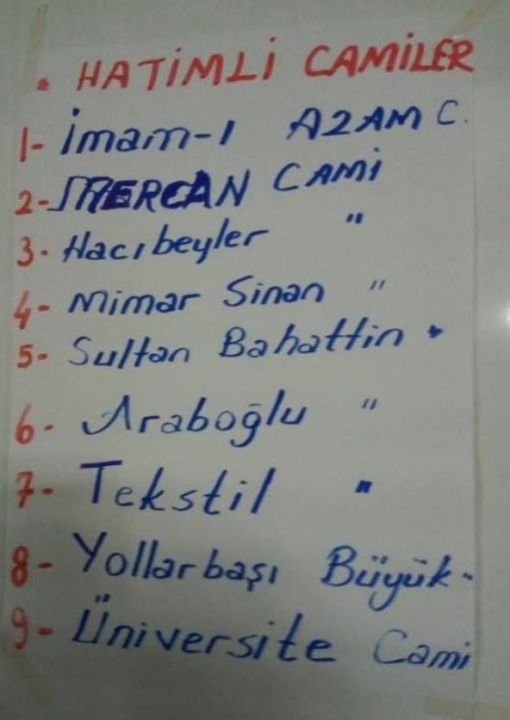 • HATİMLİ CAMİLER
1- İmam-ı AZAM C.
2- MERCAN CAMİ
3- Hacıbeyler "
4- Mimar Sinan "
5- Sultan Bahattin "
6- Araboğlu "
7- Tekstil "
8- Yollarbaşı Büyük "
9- Üniversite Cami